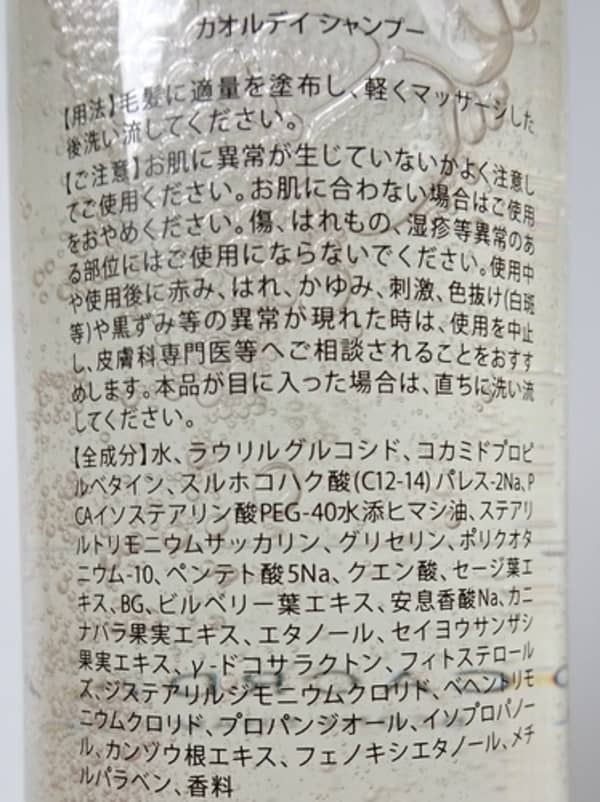 カオルデイ シャンプー
【用法】毛髪に適量を塗布し、軽くマッサージした
後洗い流してください。
【ご注意】お肌に異常が生じていないかよく注意し
てご使用ください。お肌に合わない場合はご使用
をおやめください。傷、はれもの、湿疹等異常のあ
る部位にはご使用にならないでください。使用中
や使用後に赤み、はれ、かゆみ、刺激、色抜け(白斑
等)や黒ずみ等の異常が現れた時は、使用を中止
し、皮膚科専門医等へご相談されることをおすす
めします。本品が目に入った場合は、直ちに洗い流
してください。
【全成分】水、ラウリルグルコシド、コカミドプロピ
ルベタイン、スルホコハク酸(C12-14)パレス-2Na、P
CAイソステアリン酸PEG-40水添ヒマシ油、ステアリ
ルトリモニウムサッカリン、グリセリン、ポリクオタ
ニウム-10、ペンテト酸5Na、クエン酸、セージ葉エ
キス、BG、ビルベリー葉エキス、安息香酸Na、カニ
ナバラ果実エキス、エタノール、セイヨウサンザシ
果実エキス、γ-ドコサラクトン、フィトステロール
ズ、ジステアリルジモニウムクロリド、ベヘントリモ
ニウムクロリド、プロパンジオール、イソプロパノー
ル、カンゾウ根エキス、フェノキシエタノール、メチ
ルパラベン、香料